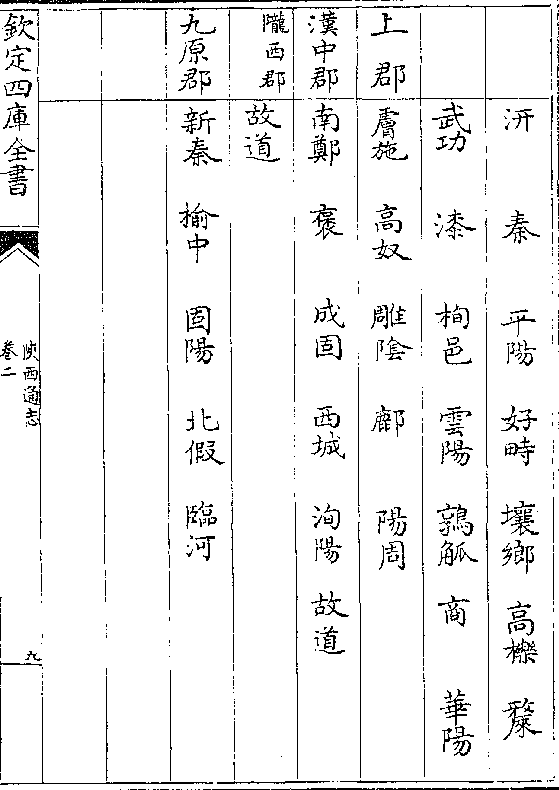 汧 秦 平陽 好畤 壤鄉 高櫟 斄
武功 漆 栒邑 雲陽 鶉觚 商 華陽
上郡 膚施 高奴 雕隂 鄜 陽周
漢中郡 南鄭 褒 成固 西城 洵陽 故道
隴西郡 故道
九原郡 新秦 榆中 固陽 北假 臨河
欽定四庫全書
陜西通志
卷二
九